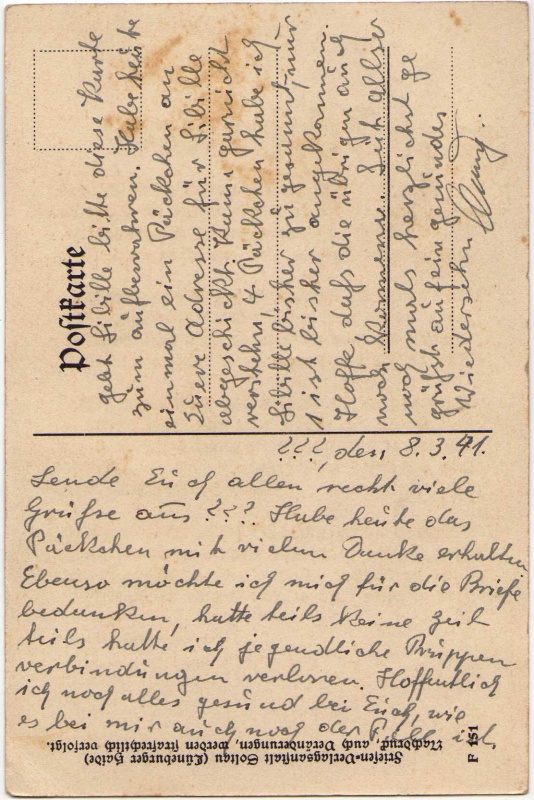 ???, den 8.3.41.
Sende Euch allen recht viele
Grüße aus ??? Habe heute das
Päckchen mit vielem Danke erhalten
Ebenso möchte ich mich für die Briefe
bedanken, hatte teils keine zeit
teils hatte ich jegendliche Truppen
verbindungen verloren. Hoffentlich
ich noch alles gesund bei Euch, wie
es bei mir auch noch der Fall ist.
Postkarte
gebt Sibille bitte diese Karte
zum aufbewahren. Habe heute
einmal ein Päckchen an
Eure Adresse für Sibille
abgeschickt. Kann garnicht
verstehn, 4 Päckchen habe ich
Sibille bisher zugesannt, nur
1 ist bisher angekommen.
Hoffe dass die übrigen auch
noch kommen. Seit alle
noch mals herzlichst ge
grüßt auf ein gesundes
Wiedersehn
Friesen-Verlagsanstalt Soltau (Lüneburger Haide)
Nachdruck, auch Veränderungen, werden strafrechtlich verfolgt.
F 151